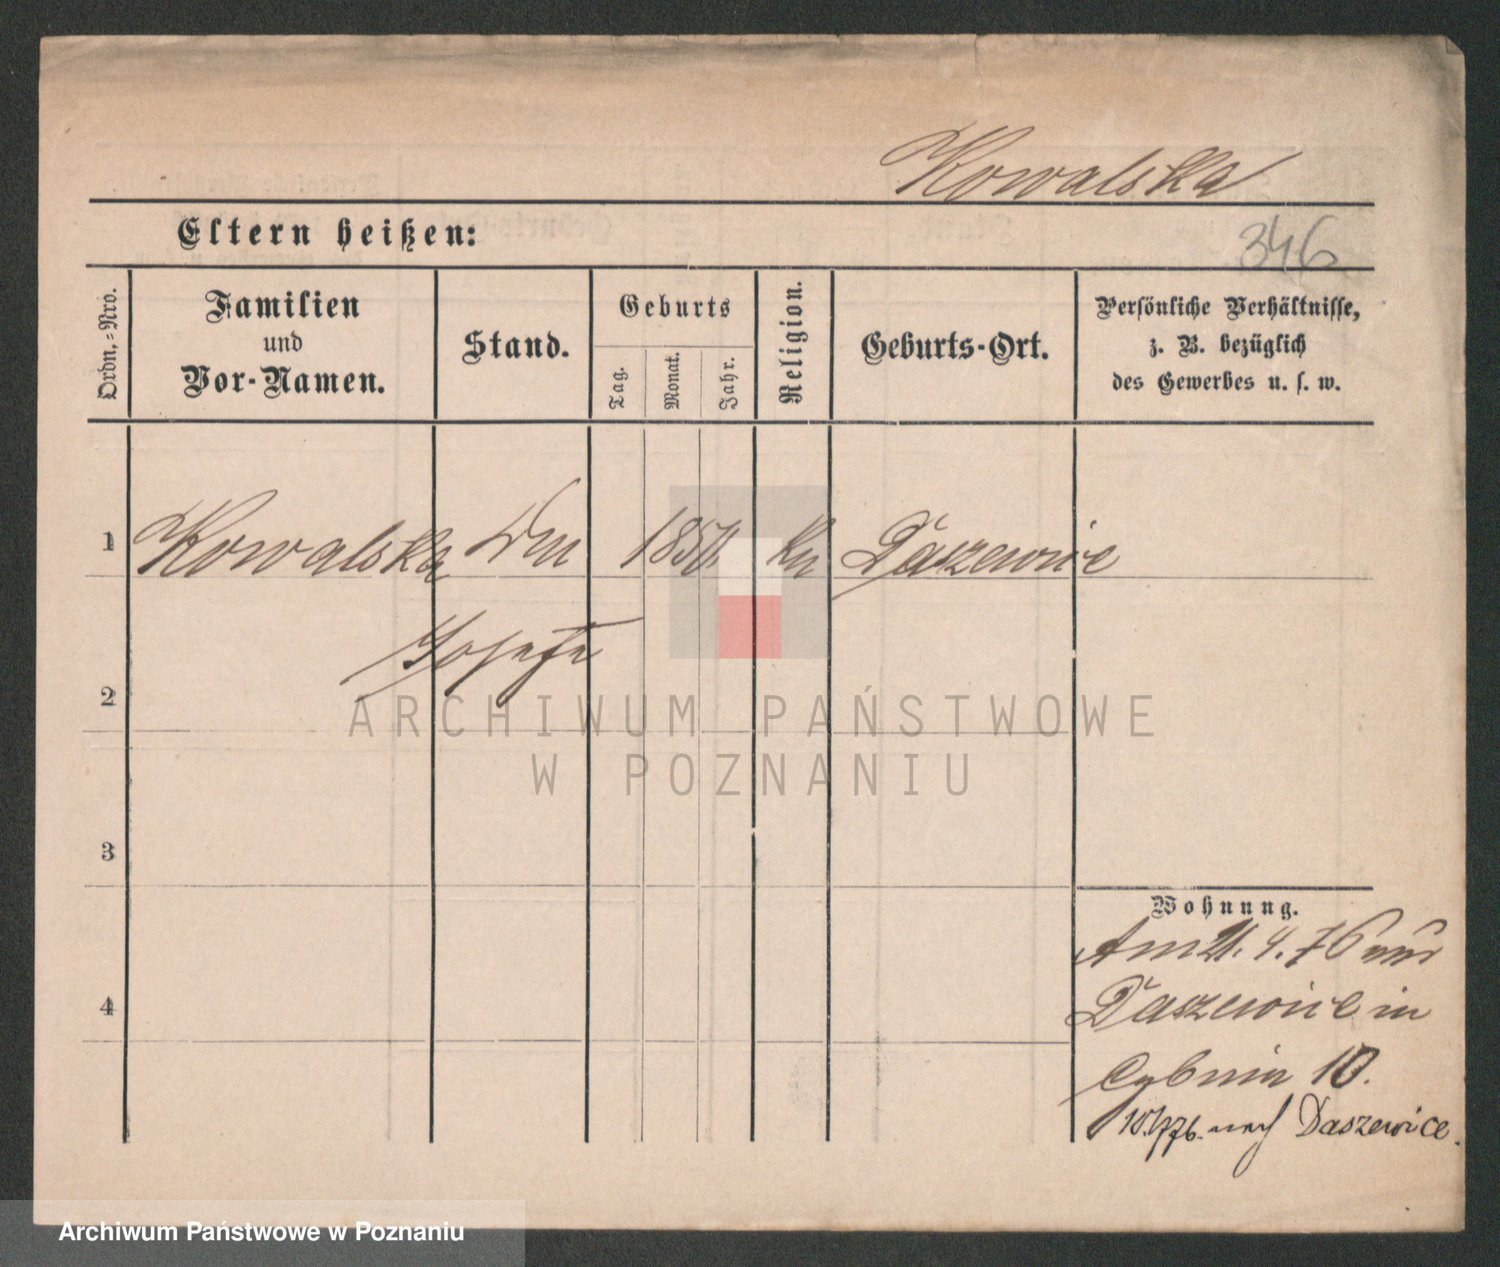 Kowalska
Eltern heißen:
346
Ordn.-Nro.
Familien
und
Vor-Namen.
Stand.
Geburts
Tag.
Monat.
Jahr.
Religion.
Geburts-Ort.
Persönliche Verhältnisse,
z. B. bezüglich
des Gewerbes u. s. w.
1 Kowalska 185 Daszewice
Josefa
2
3
4
ARCHIWUM PAŃSTWOWE
W POZNANIU
Wohnung.
Am 21. 4. 76 aus
Daszewice in
Cybina 10.
nach Daszewice.
Archiwum Państwowe w Poznaniu